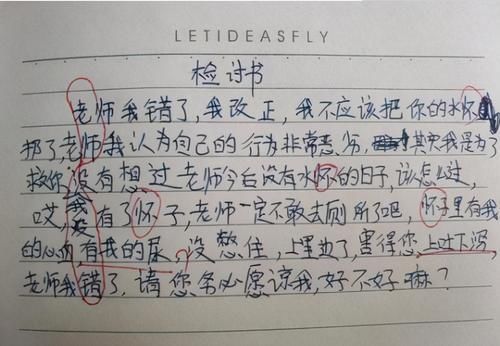 LETIDEASFLY
检讨书
老师我错了,我改正,我不应该把你的水怀
扔了,老师我认为自己的行为非常恶劣,其实我是为了
救你,没有想过老师今后没有水怀的日子,该怎么过,
哎,我没有了怀子,老师一定不敢去厕所了吧,怀子里有我
的心血,有我的尿,没憋住,上里边了,害得您,上吐下泻,
老师我错了,请您务必愿谅我,好不好嘛?